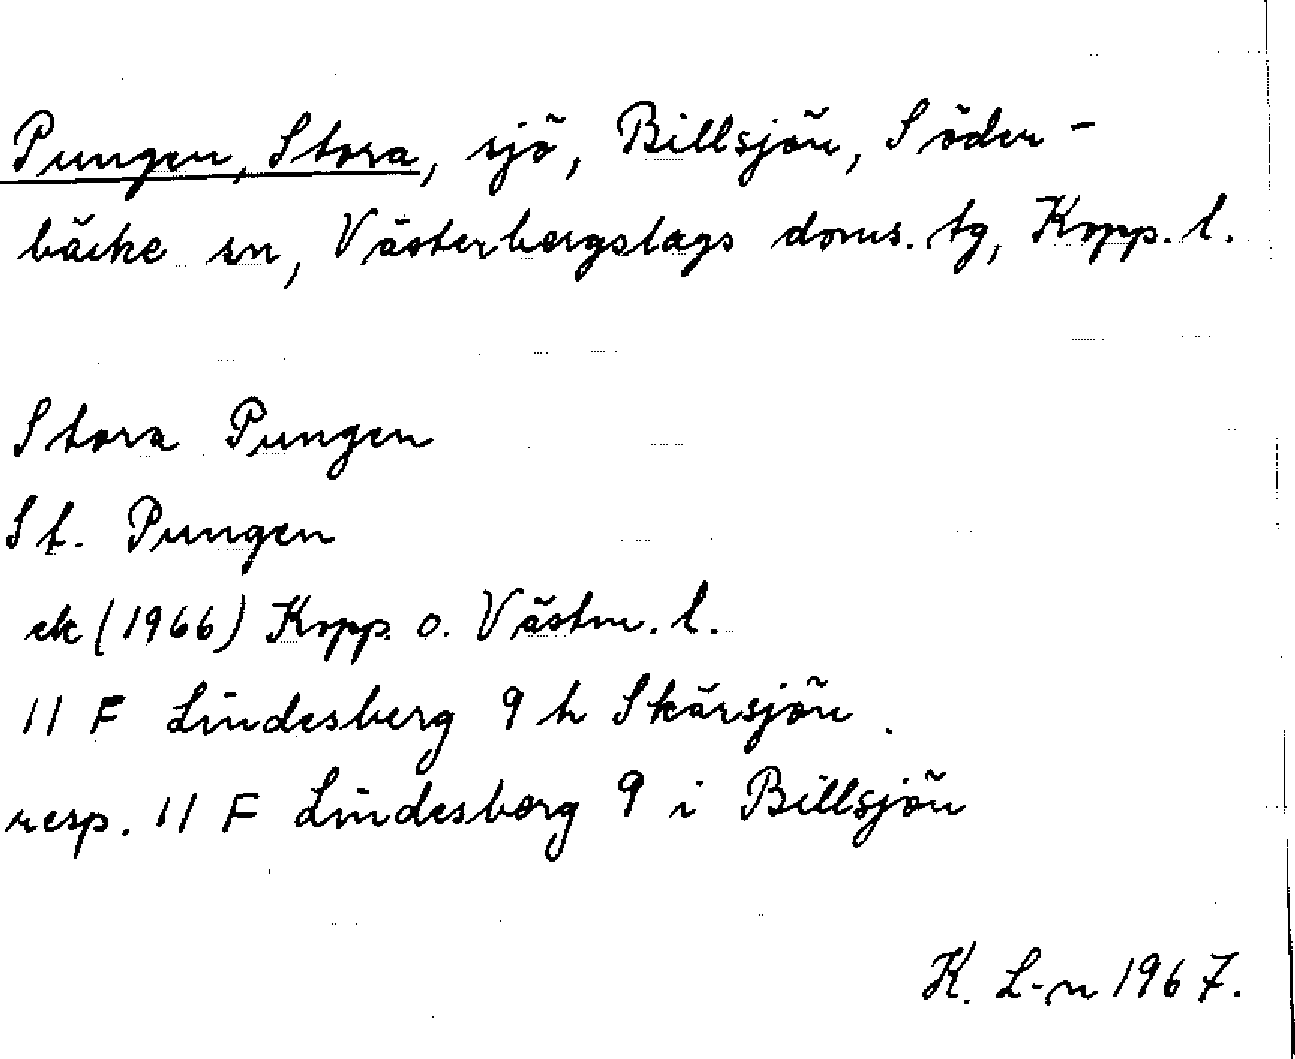 Pungen, Stora, sjö, Billsjön, Söder-
bärke sn, Västerbergslags doms. tg, Kopp. l.
Stora Pungen
St. Pungen
ek (1966) Kopp. o. Västm. l.
11 F Lindesberg 9 h Skärsjön.
resp. 11 F Lindesberg 9 i Billsjön
K. L-n 1967.